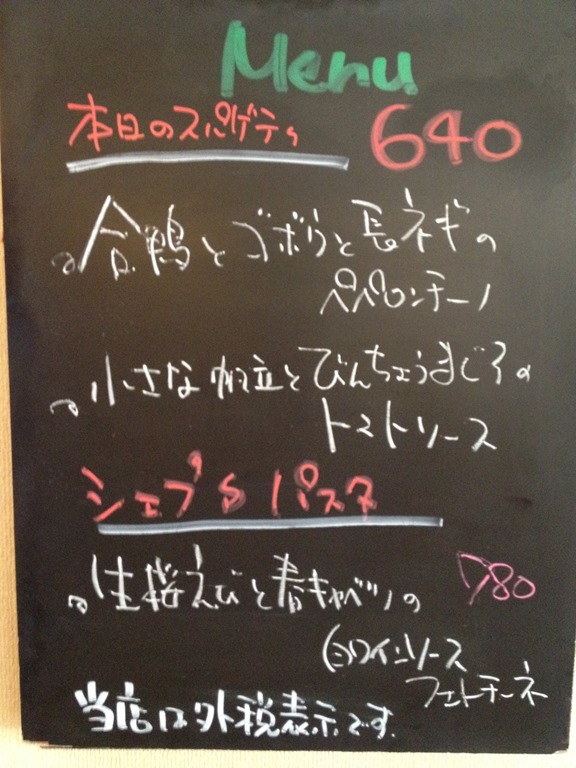 Menu
本日のスパゲティ 640
合鴨とゴボウと長ネギの
ペペロンチーノ
小さな帆立とびんちょうまぐろの
トマトソース
シェフ's パスタ
生桜えびと春キャベツの 780
白ワインソース
フェトチーネ
当店は外税表示です.